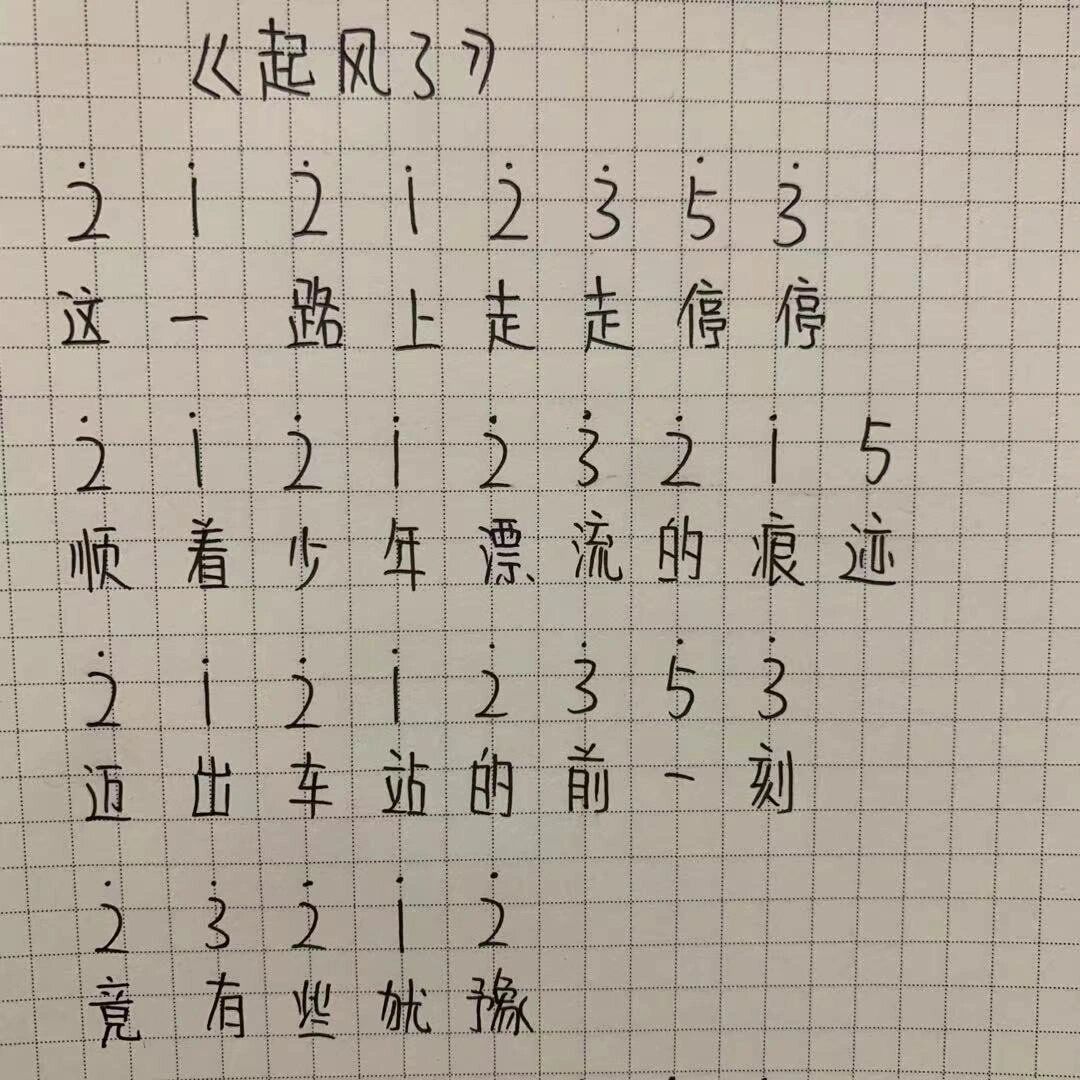 《起风了》
2̇ 1̇ 2̇ 1̇ 2̇ 3̇ 5̇ 3̇
这一路上走走停停
2̇ 1̇ 2̇ 1̇ 2̇ 3̇ 2̇ 1̇ 5
顺着少年漂流的痕迹
2̇ 1̇ 2̇ 1̇ 2̇ 3̇ 5̇ 3̇
迈出车站的前一刻
2̇ 3̇ 2̇ 1̇ 2̇
竟有些犹豫